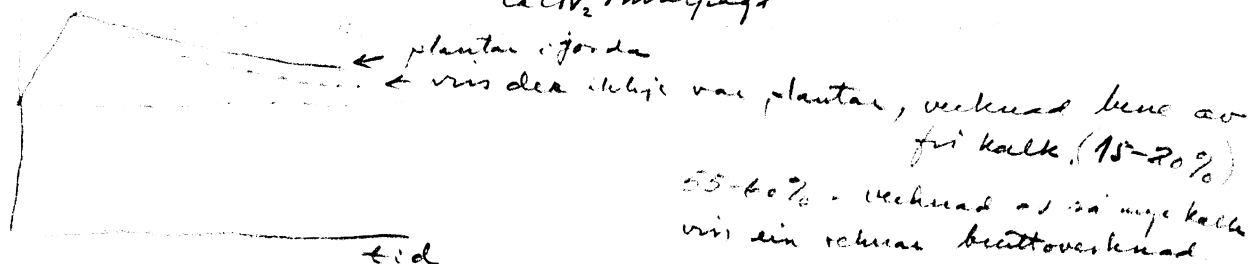 ← plantar i jorda
← viss der ikkje var plantar, verknad bene av
fri kalk. (15-20%)
55-60% - verknad av så mye kalk
viss ein reknar bruttoverknad
tid